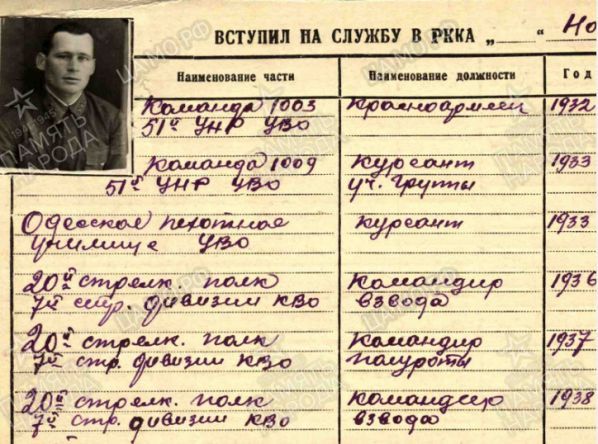 ВСТУПИЛ НА СЛУЖБУ В РККА „ “ Но
Наименование части Наименование должности Год
Команда 1003 Красноармеец 1932
51й УНР УВО
Команда 1009 Курсант 1933
51й УНР УВО уч. группы
Одесское пехотное Курсант 1933
училище УВО
20й стрелк. полк Командир 1936
7й стр. дивизии КВО взвода
20й стрелк. полк Командир 1937
7й стр. дивизии КВО полуроты
20й стрелк. полк Командир 1938
7й стр. дивизии КВО взвода
ЦАМО.РФ
1941-1945
ПАМЯТЬ
НАРОДА